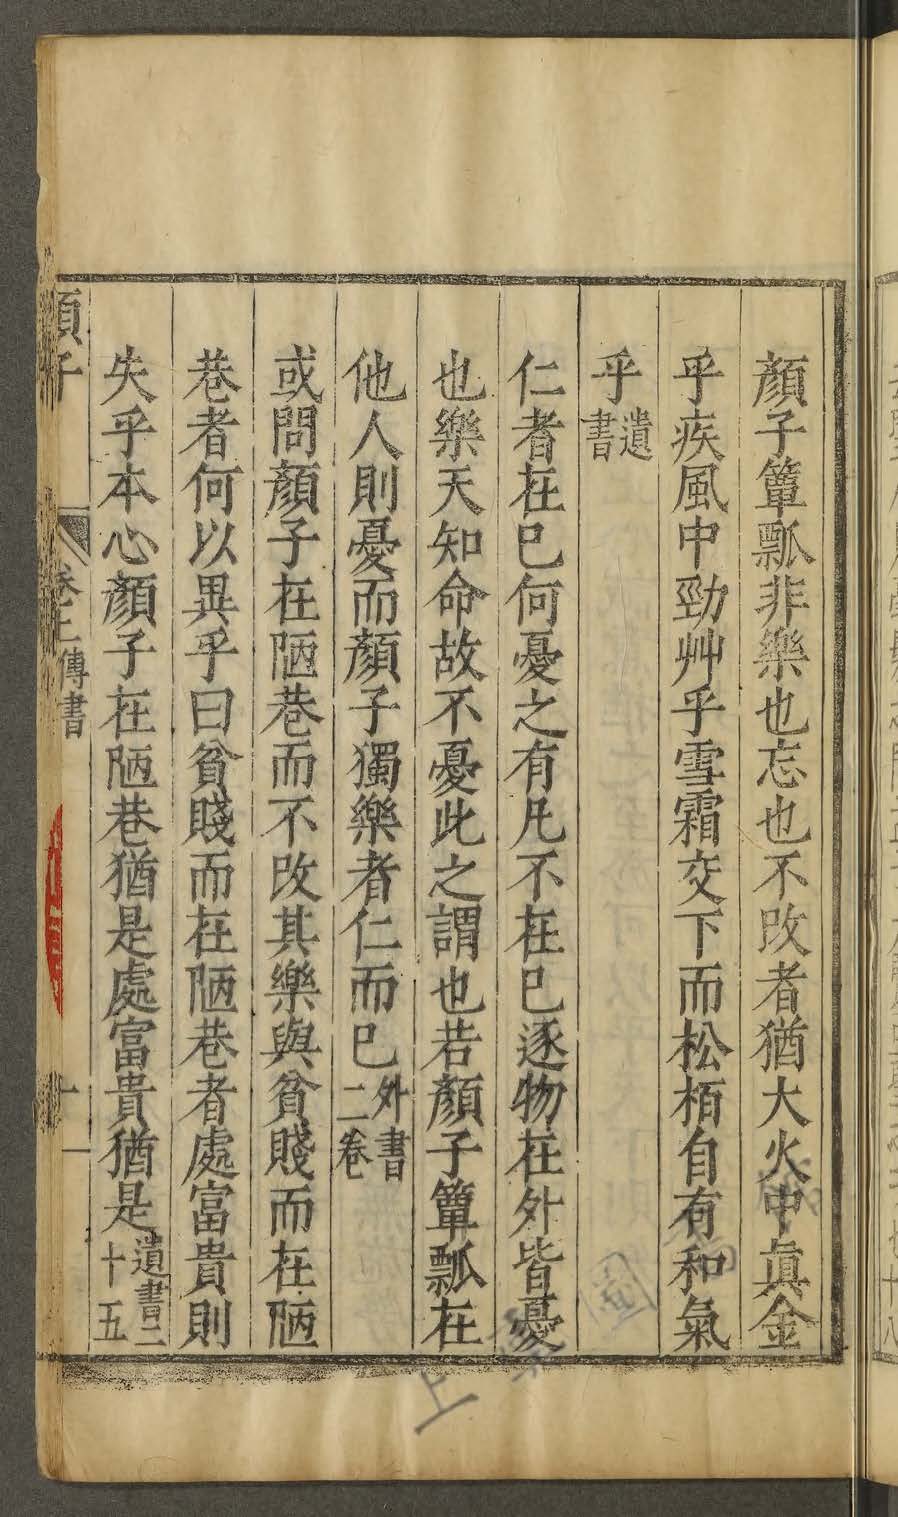 顏子簞瓢非樂也忘也不改者猶大火中真金
乎疾風中勁艸乎雪霜交下而松栢自有和氣
乎遺書
仁者在己何憂之有凡不在己逐物在外皆憂
也樂天知命故不憂此之謂也若顏子簞瓢在
他人則憂而顏子獨樂者仁而已外書二卷
或問顏子在陋巷而不改其樂與貧賤而在陋
巷者何以異乎曰貧賤而在陋巷者處富貴則
失乎本心顏子在陋巷猶是處富貴猶是遺書二十五
顏子
卷上傳書
十一